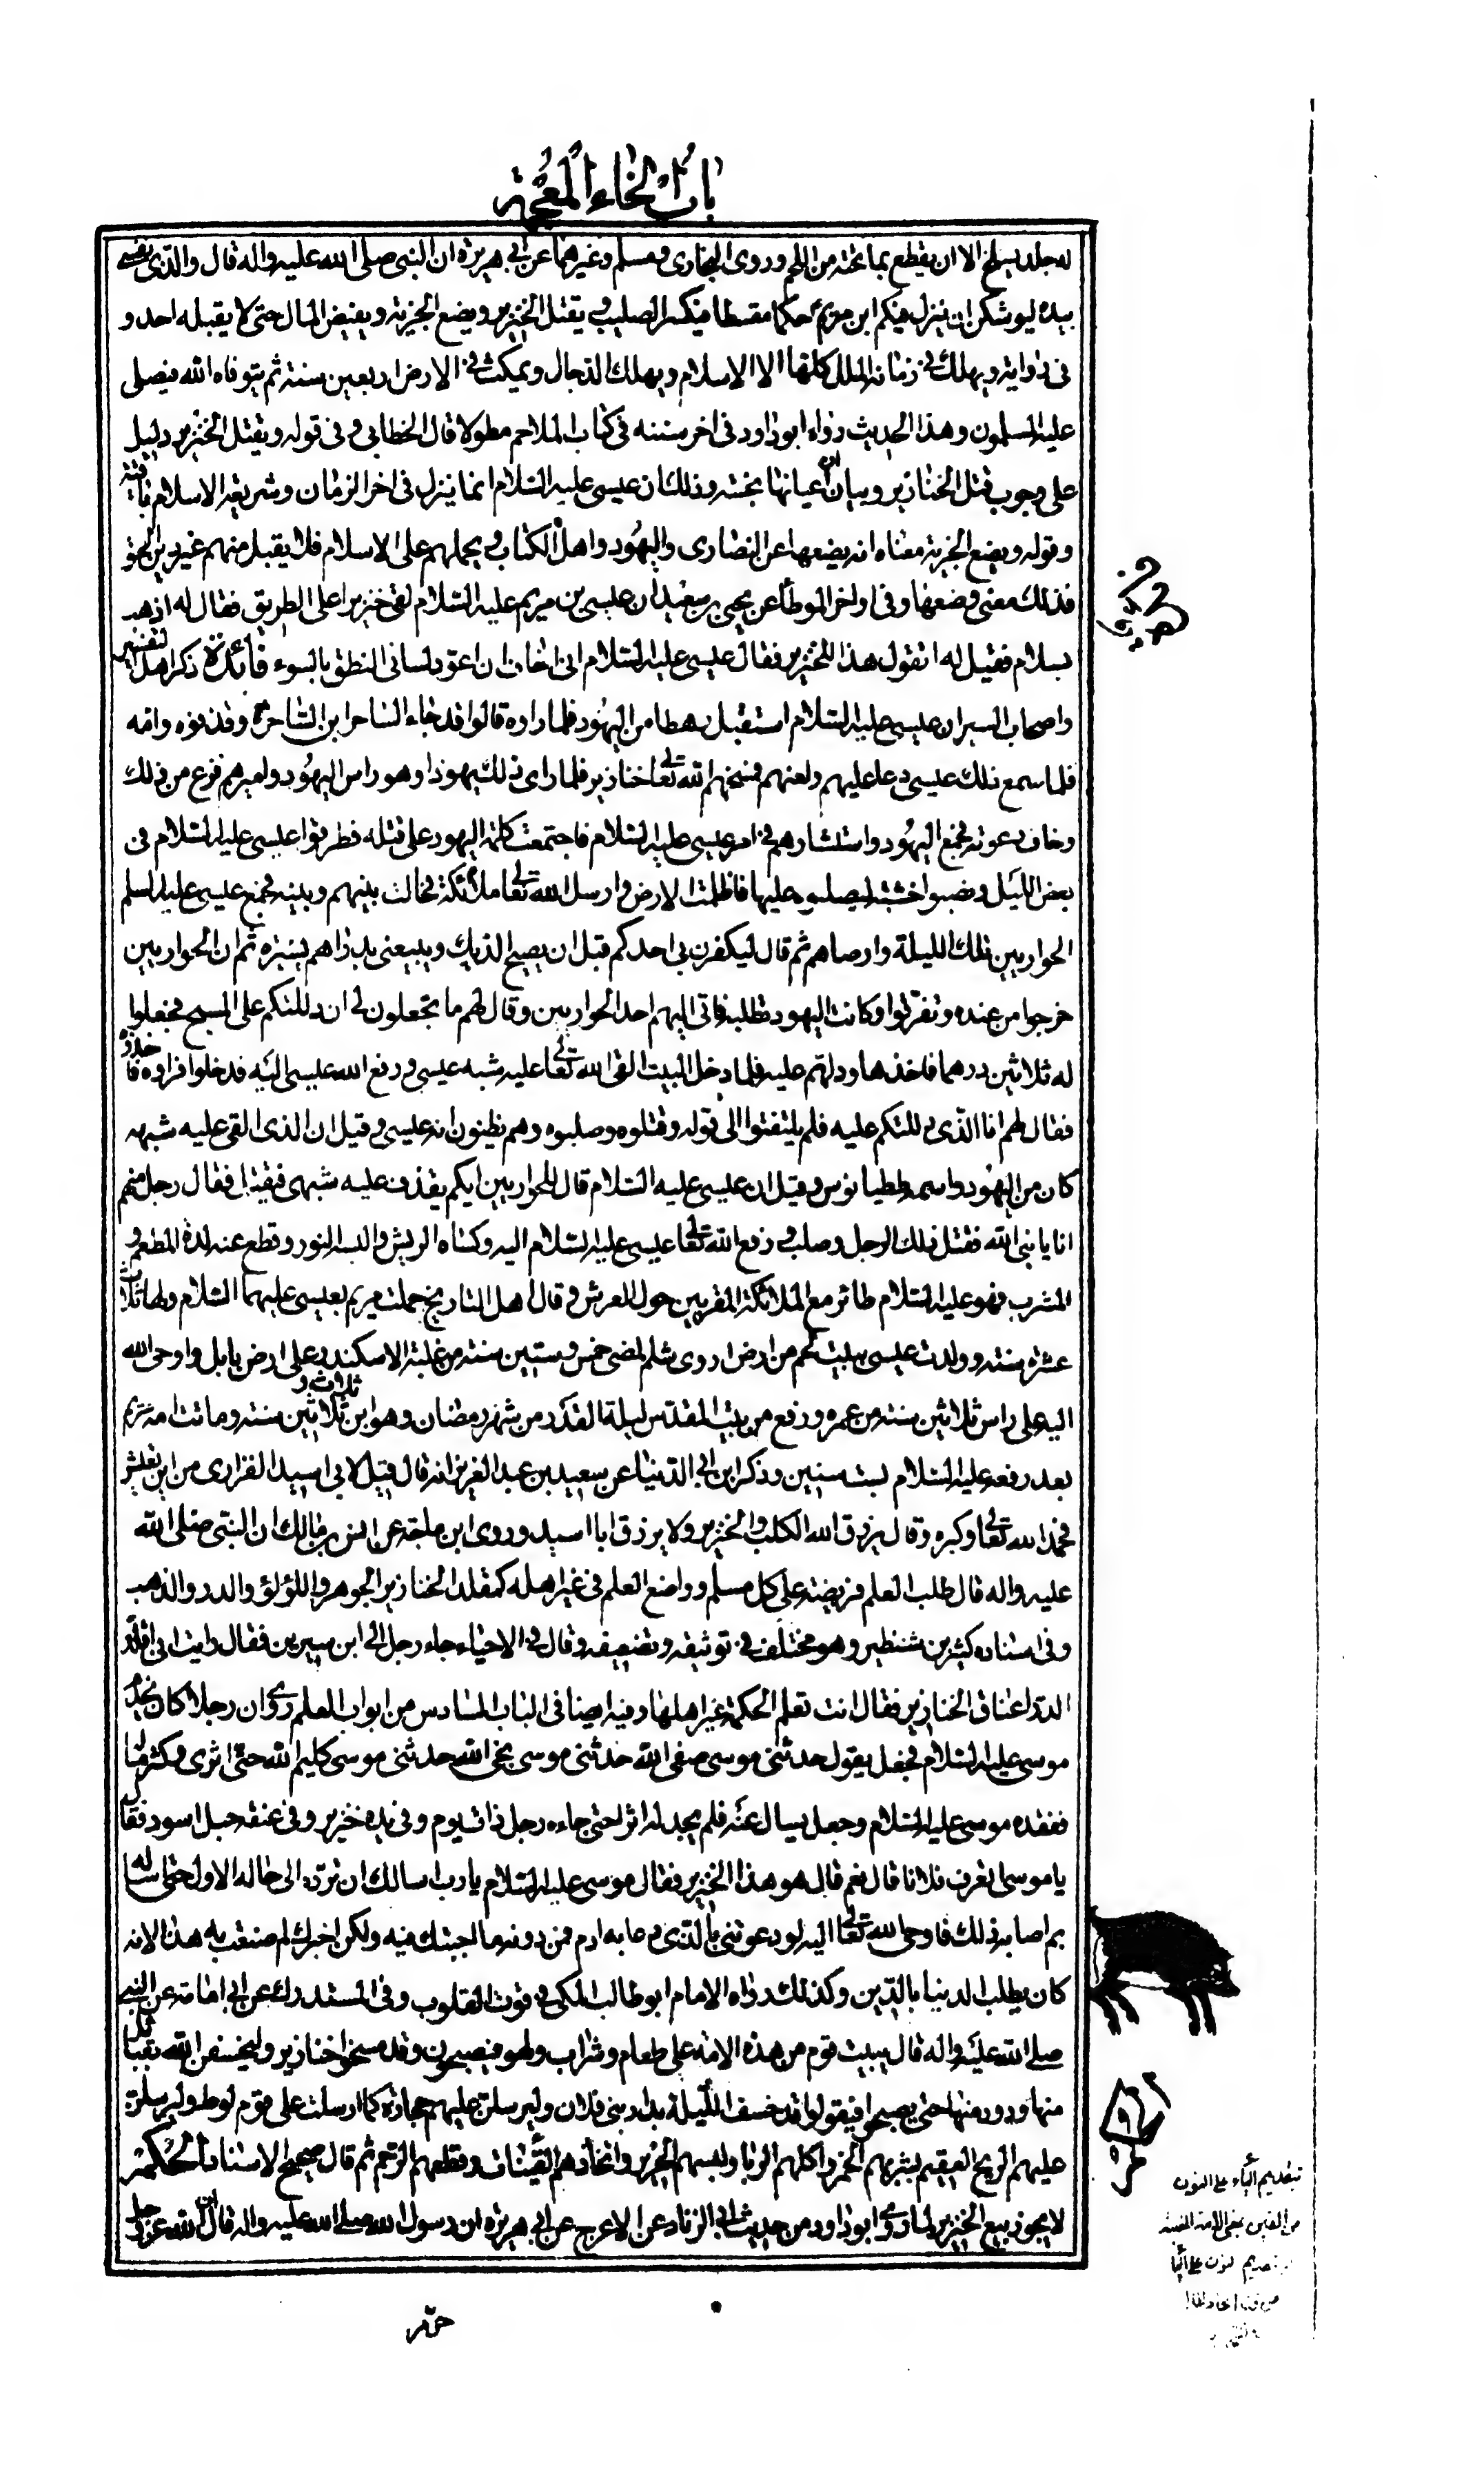 باب الخاء المعجمة
له جلد يسلخ الا ان يقطع بما تحته من اللحم وروى البخارى ومسلم وغيرهما عن ابى هريرة ان النبى صلى الله عليه واله قال والذى نفسى
بيده ليوشكن ان ينزل فيكم ابن مريم حكما مقسطا فيكسر الصليب و يقتل الخنزير ويضع الجزية ويفيض المال حتى لا يقبله احد و
فى رواية ويهلك فى زمانه الملل كلها الا الاسلام ويهلك الدجال ويمكث فى الارض اربعين سنة ثم يتوفاه الله فيصلى
عليه المسلمون وهذا الحديث رواه ابو داود فى اخر سننه فى كتاب الملاحم مطولا قال الخطابى و فى قوله ويقتل الخنزير دليل
على وجوب قتل الخنازير وبيان ان اعيانها نجسة وذلك ان عيسى عليه السلام انما ينزل فى اخر الزمان وشريعة الاسلام باقية
وقوله ويضع الجزية معناه انه يضعها عن النصارى واليهود واهل الكتاب و يحملهم على الاسلام فلا يقبل منهم غير دين الحق
فذلك معنى وضعها وفى اواخر الموطأ عن يحيى بن سعيد ان عيسى بن مريم عليه السلام لقى خنزيرا على الطريق فقال له اذهب
بسلام فقيل له اتقول هذا للخنزير فقال عيسى عليه السلام انى اخاف ان اعود لسانى النطق بالسوء فائدة ذكر اهل التفسير
واصحاب السير ان عيسى عليه السلام استقبل رهطا من اليهود فلما راوه قالوا قد جاء الساحر ابن الساحرة وقذفوه وامه
فلما سمع ذلك عيسى دعا عليهم ولعنهم فمسخهم الله تعالى خنازير فلما راى ذلك يهوذا وهو راس اليهود واميرهم فزع من ذلك
وخاف دعوته فجمع اليهود واستشارهم فى امر عيسى عليه السلام فاجتمعت كلمة اليهود على قتله فطرقوا عيسى عليه السلام فى
بعض الليل ونصبوا خشبة ليصلبوه عليها فاظلمت الارض و ارسل الله تعالى ملائكة فحالت بينهم وبينه فجمع عيسى عليه السلم
الحواريين تلك الليلة واوصاهم ثم قال ليكفرن بى احدكم قبل ان يصيح الديك ويبيعنى بدراهم يسيرة ثم ان الحواريين
خرجوا من عنده وتفرقوا وكانت اليهود تطلبه فاتى اليهم احد الحواريين وقال لهم ما تجعلون لى ان دللتكم على المسيح فجعلوا
له ثلاثين درهما فاخذها ودلهم عليه فلما دخل البيت القى الله تعالى عليه شبه عيسى و رفع الله عيسى اليه فدخلوا فراوه فاخذوه
فقال لهم انا الذى دللتكم عليه فلم يلتفتوا الى قوله وقتلوه وصلبوه وهم يظنون انه عيسى و قيل ان الذى القى عليه شبهه
كان من اليهود واسمه ططيانوس وقيل ان عيسى عليه السلام قال للحواريين ايكم يقذف عليه شبهى فيقتل فقال رجل منهم
انا يا نبى الله فقتل ذلك الرجل وصلب و رفع الله تعالى عيسى عليه السلام اليه وكساه الريش و البسه النور وقطع عنه لذة المطعم و
المشرب فهو عليه السلام طائر مع الملائكة المقربين حول العرش و قال اهل التاريخ حملت مريم بعيسى عليهما السلام ولها ثلاث
عشرة سنة وولدت عيسى ببيت لحم من ارض اورى شلم لمضى خمس وستين سنة من غلبة الاسكندر على ارض بابل واوحى الله
اليه على راس ثلاثين سنة من عمره ورفع من بيت المقدس ليلة القدر من شهر رمضان وهو ابن ثلاث و ثلاثين سنة وماتت امه مريم
بعد رفعه عليه السلام بست سنين وذكر ابن ابى الدنيا عن سعيد بن عبد العزيز انه قال قيل لابى اسيد الفزارى من اين تعيش
فحمد الله تعالى وكبره وقال يرزق الله الكلب والخنزير ولا يرزق ابا اسيد وروى ابن ماجة عن انس بن مالك ان النبى صلى الله
عليه واله قال طلب العلم فريضة على كل مسلم وواضع العلم فى غير اهله كمقلد الخنازير الجوهر واللؤلؤ والدر والذهب
وفى اسناده كثير بن شنظير وهو مختلف فى توثيقه وتضعيفه وقال فى الاحياء جاء رجل الى ابن سيرين فقال رايت انى اقلد
الدر اعناق الخنازير فقال انت تعلم الحكمة غير اهلها وفيه ايضا فى الباب السادس من ابواب العلم روى ان رجلا كان يخدم
موسى عليه السلام فجعل يقول حدثنى موسى صفى الله حدثنى موسى نجى الله حدثنى موسى كليم الله حتى اثرى وكثر ماله
ففقده موسى عليه السلام وجعل يسال عنه فلم يجد له اثرا حتى جاءه رجل ذات يوم وفى يده خنزير وفى عنقه حبل اسود فقال
يا موسى اتعرف فلانا قال نعم قال هو هذا الخنزير فقال موسى عليه السلام يا رب اسالك ان ترده الى حاله الاول حتى اساله
بم اصابه ذلك فاوحى الله تعالى اليه لو دعوتنى بالذى دعا به ادم فمن دونه ما اجبتك فيه ولكن اخبرك لم صنعت به هذا لانه
كان يطلب الدنيا بالدين وكذلك رواه الامام ابو طالب المكى فى قوت القلوب وفى المستدرك عن ابى امامة عن النبى
صلى الله عليه واله قال يبيت قوم من هذه الامة على طعام وشراب ولهو فيصبحون وقد مسخوا خنازير وليخسفن الله بقبائل
منها ودور منها حتى يصبحوا فيقولوا قد خسف الليلة بدار بنى فلان وليرسلن عليهم حجارة كما ارسلت على قوم لوط وليرسلن
عليهم الريح العقيم بشربهم الخمر واكلهم الربا ولبسهم الحرير واتخاذهم القينات وقطعهم الرحم ثم قال صحيح الاسناد الحكم
لا يجوز بيع الخنزير لما روى ابو داود من حديث ابى الزناد عن الاعرج عن ابى هريرة ان رسول الله صلى الله عليه واله قال ان الله عز وجل
حرم
بتقديم الياء على النون
من القين بمعنى الامة المغنية